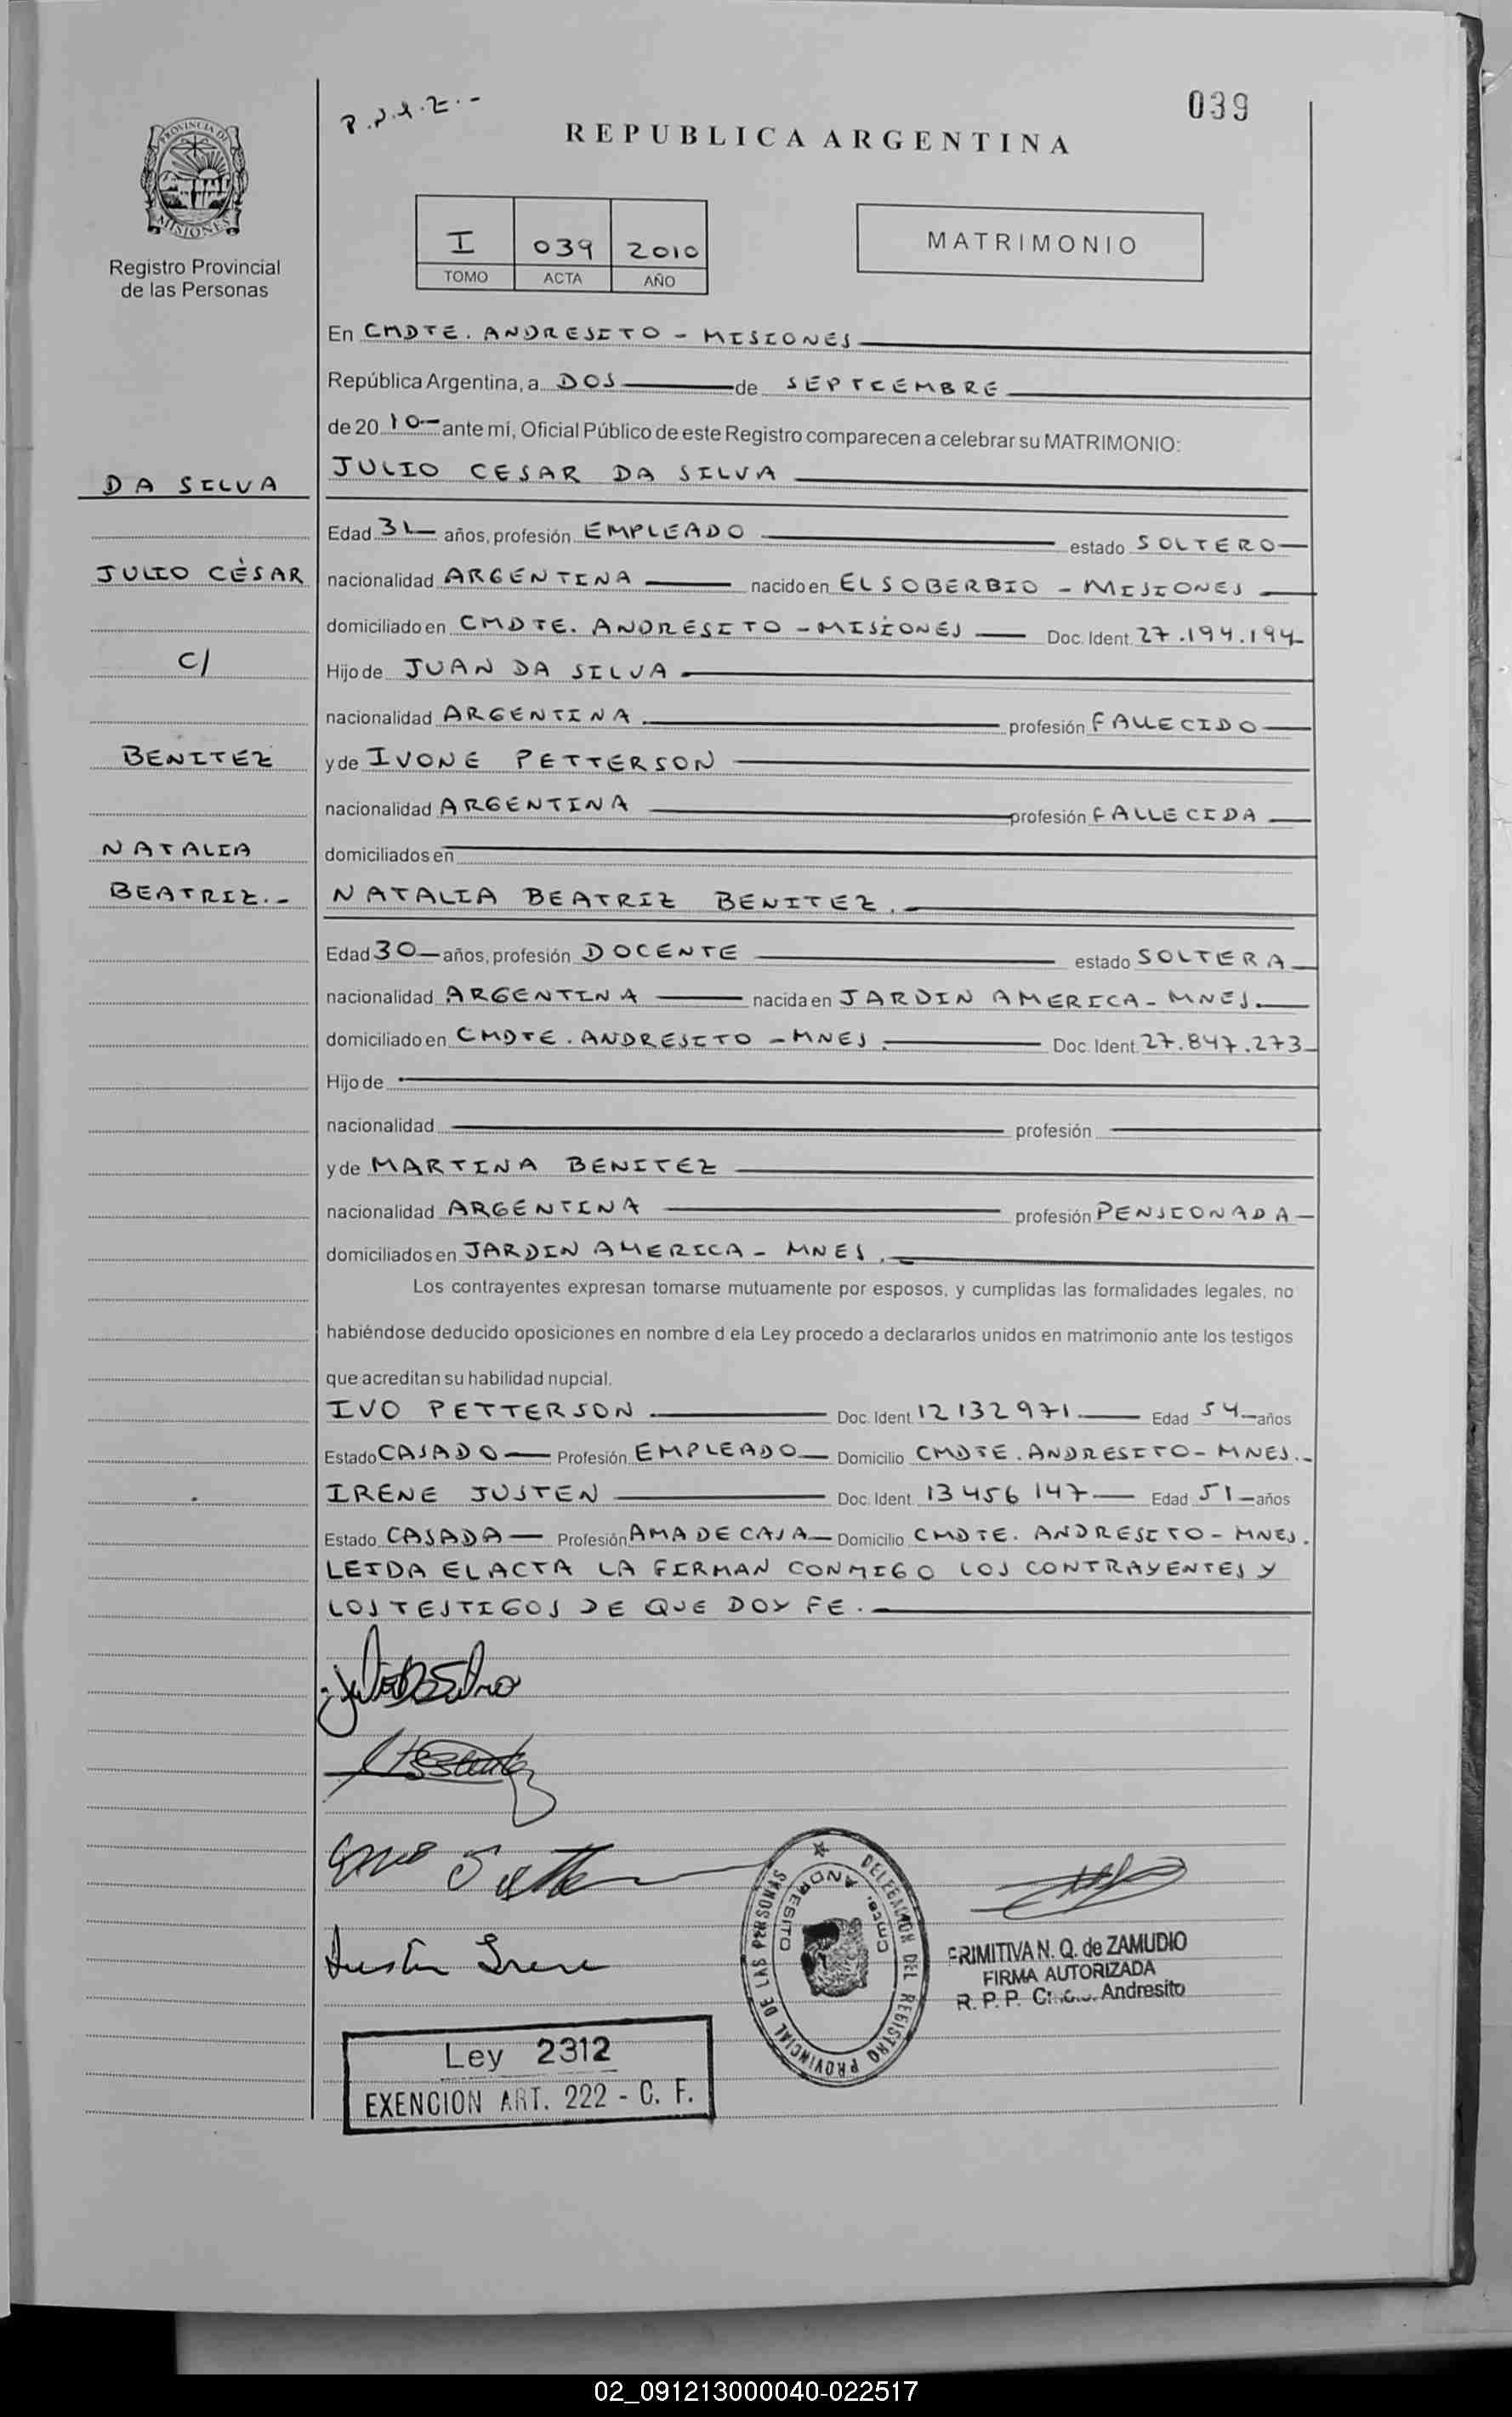 039
REPUBLICA ARGENTINA
PROVINCIA DE
MISIONES
Registro Provincial
de las Personas
I 039 2010
TOMO ACTA AÑO
MATRIMONIO
En CMDTE. ANDRESITO - MISIONES
República Argentina, a DOS de SEPTIEMBRE
de 20 10 ante mí, Oficial Público de este Registro comparecen a celebrar su MATRIMONIO:
DA SILVA
JULIO CESAR DA SILVA
Edad 31 años, profesión EMPLEADO estado SOLTERO
JULIO CÉSAR
nacionalidad ARGENTINA nacido en EL SOBERBIO - MISIONES
domiciliado en CMDTE. ANDRESITO - MISIONES Doc. Ident. 27.194.194
C/
Hijo de JUAN DA SILVA
nacionalidad ARGENTINA profesión FALLECIDO
BENITEZ
y de IVONE PETTERSON
nacionalidad ARGENTINA profesión FALLECIDA
NATALIA
domiciliados en
BEATRIZ.-
NATALIA BEATRIZ BENITEZ.
Edad 30 años, profesión DOCENTE estado SOLTERA
nacionalidad ARGENTINA nacida en JARDIN AMERICA - MNES.
domiciliado en CMDTE. ANDRESITO - MNES. Doc. Ident. 27.847.273
Hijo de
nacionalidad profesión
y de MARTINA BENITEZ
nacionalidad ARGENTINA profesión PENSIONADA
domiciliados en JARDIN AMERICA - MNES.
Los contrayentes expresan tomarse mutuamente por esposos, y cumplidas las formalidades legales, no
habiéndose deducido oposiciones en nombre d ela Ley procedo a declararlos unidos en matrimonio ante los testigos
que acreditan su habilidad nupcial.
IVO PETTERSON Doc. Ident. 12132971 Edad 54 años
Estado CASADO Profesión EMPLEADO Domicilio CMDTE. ANDRESITO - MNES.
IRENE JUSTEN Doc. Ident. 13456147 Edad 51 años
Estado CASADA Profesión AMA DE CASA Domicilio CMDTE. ANDRESITO - MNES.
LEIDA EL ACTA LA FIRMAN CONMIGO LOS CONTRAYENTES Y
LOS TESTIGOS DE QUE DOY FE.
Justen Irene
DELEGACION DEL REGISTRO PROVINCIAL DE LAS PERSONAS
CMDTE. ANDRESITO
PRIMITIVA N. Q. de ZAMUDIO
FIRMA AUTORIZADA
R. P. P. Andresito
Ley 2312
EXENCION ART. 222 - C. F.
02_091213000040-022517